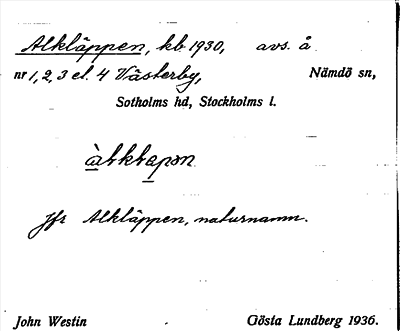 Alkläppen, kb 1930, avs. å
nr 1, 2, 3 el. 4 Västerby, Nämdö sn,
Sotholms hd, Stockholms l.
Jfr Alkläppen, naturnamn.
John Westin Gösta Lundberg 1936.